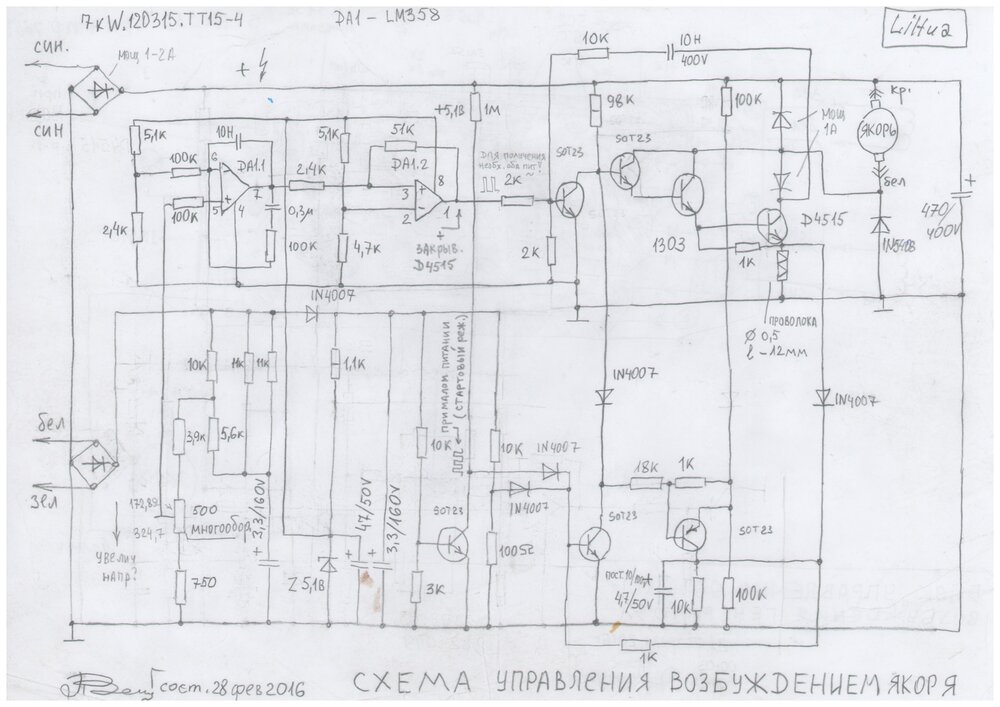 7кW.120315.TT15-4
DA1 - LM358
LiHua
СИН.
МОЩ 1-2А
+
СИН
10К
10Н
400V
5,1К
10Н
5,1К
51К
+5,1В
1М
98К
100К
МОЩ
1А
кр.
ЯКОРЬ
бел
100К
6
DA1.1
7
2,4К
DA1.2
8
3
1
2
ДЛЯ ПОЛУЧЕНИЯ
2К
SOT23
SOT23
100К
5
4
0,3м
2,4К
100К
4,7К
+
ЗАКРЫВ.
D4515
2К
1303
1К
D4515
+
470/
400V
ПРОВОЛОКА
Ø 0,5
ℓ - 12мм
IN4007
10К
11К
11К
1,1К
ПРИ МАЛОМ ПИТАНИИ
(СТАРТОВЫЙ РЕЖ.)
IN4007
IN4007
бел
зел
3,9К
5,6К
10К
10К
IN4007
IN4007
172,8Ω
324,7
500
МНОГООБОР.
+ 3,3/160V
+ 47/50V
+ 3,3/160V
SOT23
18К
1К
SOT23
SOT23
УВЕЛИЧ
НАПР?
750
Z 5,1В
3К
100Ω
+
4,7/50V
10К
100К
1К
сост. 28 фев 2016
СХЕМА УПРАВЛЕНИЯ ВОЗБУЖДЕНИЕМ ЯКОРЯ